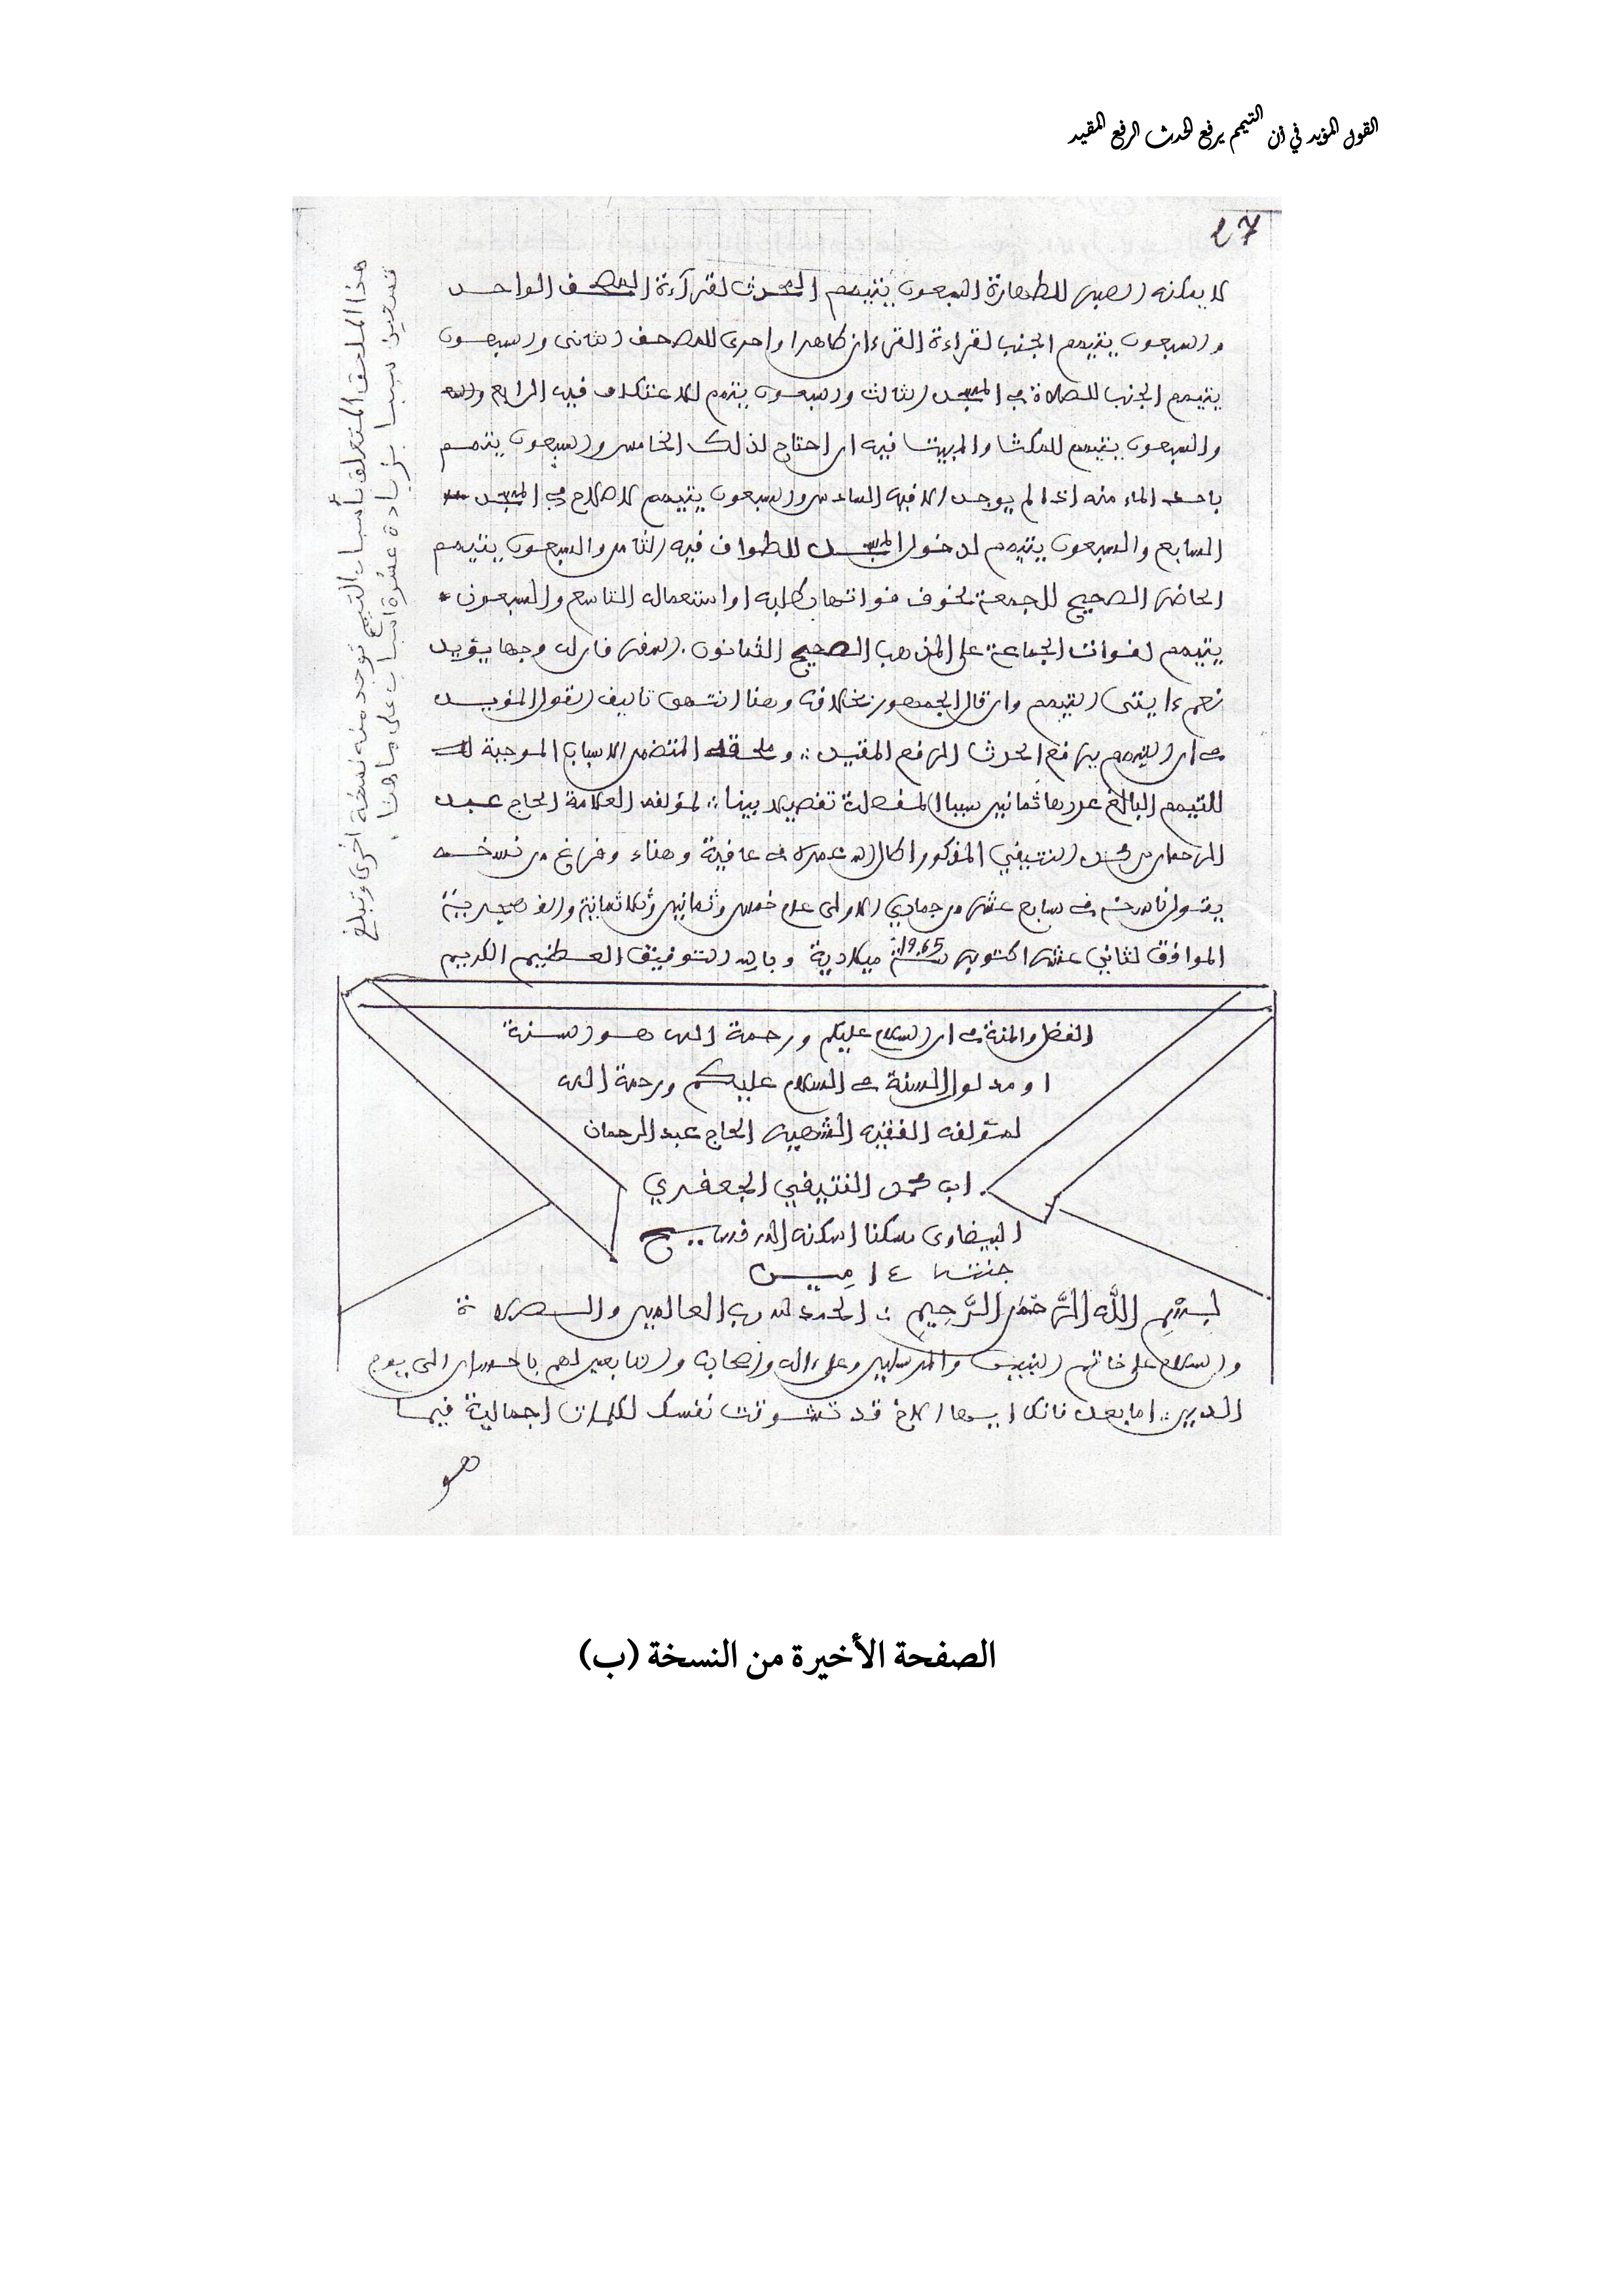 القول المؤيد في أن التيمم يرفع الحدث الرفع المقيد
27
لا يمكنه الصبر للطهارة السبعون يتيمم المحدث لقراءة المصحف الواحد
والسبعون يتيمم الجنب لقراءة القرءان ظاهرا واحرى للمصحف الثاني والسبعون
يتيمم الجنب للصلاة في المسجد الثالث والسبعون يتيمم للاعتكاف فيه الرابع
والسبعون يتيمم للمكث والمبيت فيه ان احتاج لذلك الخامس والسبعون يتيمم
باخذ الماء منه اذا لم يوجد الا فيه السادس والسبعون يتيمم للاصلاح في المسجد
السابع والسبعون يتيمم لدخول المسجد للطواف فيه الثامن والسبعون يتيمم
الحاضر الصحيح للجمعة لخوف فواتها بطلبه او استعماله التاسع والسبعون
يتيمم لفوات الجماعة على المذهب الصحيح الثمانون. وجها يؤيد
نعم التيمم وان قال الجمهور بخلافه وهنا انتهى تاليف القول المؤيد
في ان التيمم يرفع الحدث الرفع المقيد وملحقه المتضمن الاسباب الموجبة
للتيمم البالغ عددها ثمانين سببا المفصلة تفصيلا بينا لمؤلفه العلامة الحاج عبد
الرحمان بن محمد النتيفي المذكور اطال الله عمره في عافية وهناء وفرغ من نسخه
يقول ناسخه في سابع عشر من جمادي الاولى عام خمس وثمانين وثلاثمائة والف هجرية
الموافق لثاني عشر اكتوبر سنة 1965 ميلادية وبالله التوفيق العظيم الكريم
هذا الملحق المتعلق بأسباب التيمم توجد منه نسخة اخرى وتبلغ
تسعين سببا بزيادة عشرة اسباب على ما هنا.
الفضل والمنة في ان السلام عليكم ورحمة الله هو السنة
او مدلول السنة في السلام عليكم ورحمة الله
لمؤلفه الفقيه الشهير الحاج عبد الرحمان
ابن محمد النتيفي الجعفري
البيضاوي سكنا اسكنه الله فسيح
جنته ءامين
بِسْمِ اللَّهِ الرَّحْمَنِ الرَّحِيمِ الحمد لله رب العالمين والصلاة
والسلام على خاتم النبيين والمرسلين وعلى ءاله واصحابه والتابعين لهم باحسان الى يوم
الدين اما بعد فانك ايها الاخ قد تشوقت نفسك لكلمات اجمالية فيما
هو
الصفحة الأخيرة من النسخة (ب)